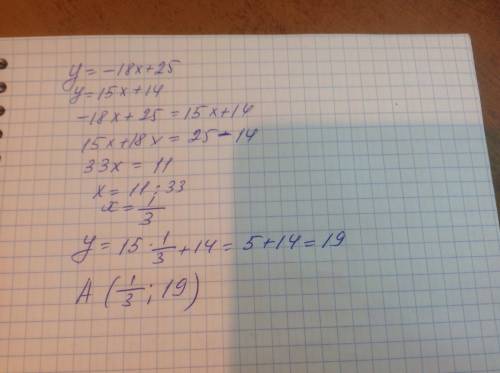 y = -18x+25
y=15x+14
-18x+25 = 15x+14
15x+18x = 25-14
33x = 11
x = 11 : 33
x = 1/3
y = 15 · 1/3 + 14 = 5+14 = 19
A (1/3 ; 19)